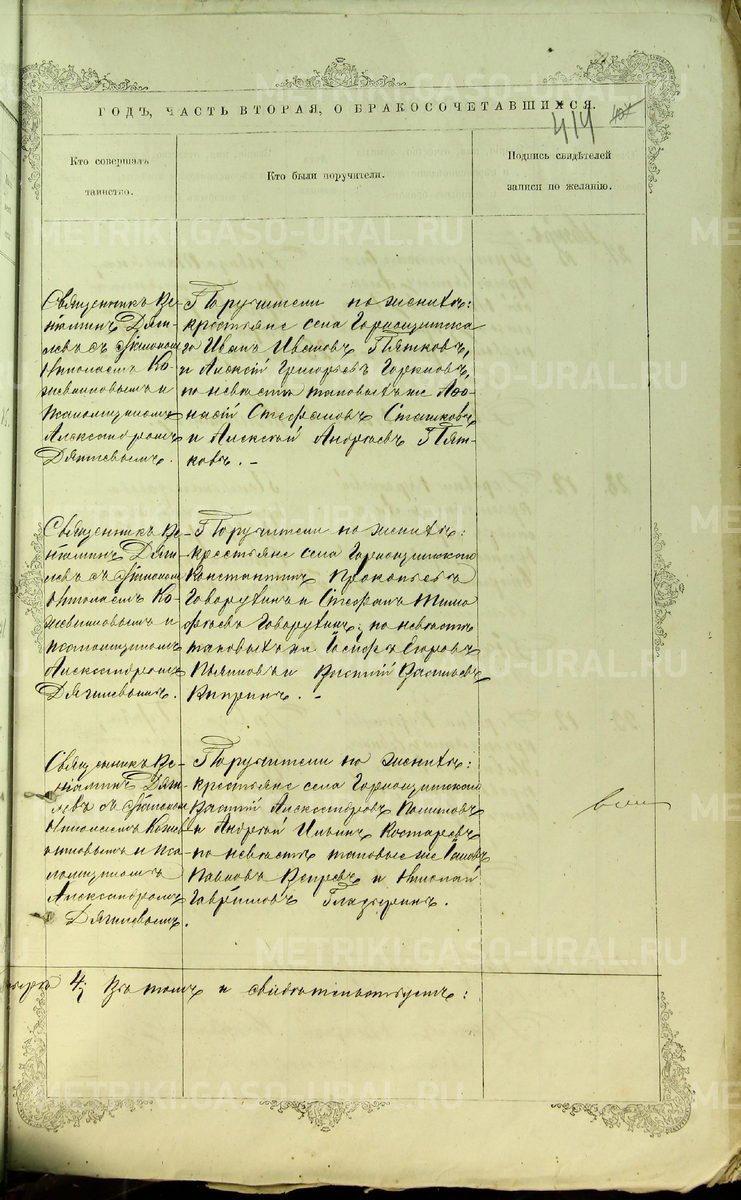 ГОДЪ, ЧАСТЬ ВТОРАЯ, О БРАКОСОЧЕТАВШИХСЯ.
414
Кто совершалъ
таинство.
Кто были поручители.
Подпись свидѣтелей
записи по желанію.
Священникъ Ве-
ніаминъ Дяги-
левъ съ Діакономъ
Николаемъ Ко-
жевниковымъ и
Псаломщикомъ
Александромъ
Дягилевымъ.
Поручители по женихѣ:
крестьяне села Горнощитска-
го Иванъ Ивановъ Пятковъ,
и Алексѣй Григорьевъ
по невѣстѣ таковые же Аѳо-
насій Стефановъ
и Алексѣй Андреевъ Пят-
ковъ. -
Священникъ Ве-
ніаминъ Дяги-
левъ съ Діакономъ
Николаемъ Ко-
жевниковымъ и
псаломщикомъ
Александромъ
Дягилевымъ.
Поручители по женихѣ:
крестьяне села Горнощитскаго
Константинъ Прокопьевъ
Говорухинъ и Стефанъ Тимо
фѣевъ Говорухинъ; по невѣстѣ
таковые же Іосифъ Егоровъ
и Василій Васильевъ
. -
Священникъ Ве-
ніаминъ Дяги-
левъ съ Діакономъ
Николаемъ Кожев
никовымъ и пса
ломщикомъ
Александромъ
Дягилевымъ.
Поручители по женихѣ:
крестьяне села Горнощитскаго
Василій Александровъ
и Андрей Ильинъ Костаревъ
по невѣстѣ таковые же
Павловъ и Николай
Гавріиловъ
4; Въ томъ и свидѣтельствуютъ:
METRIKI.GASO-URAL.RU